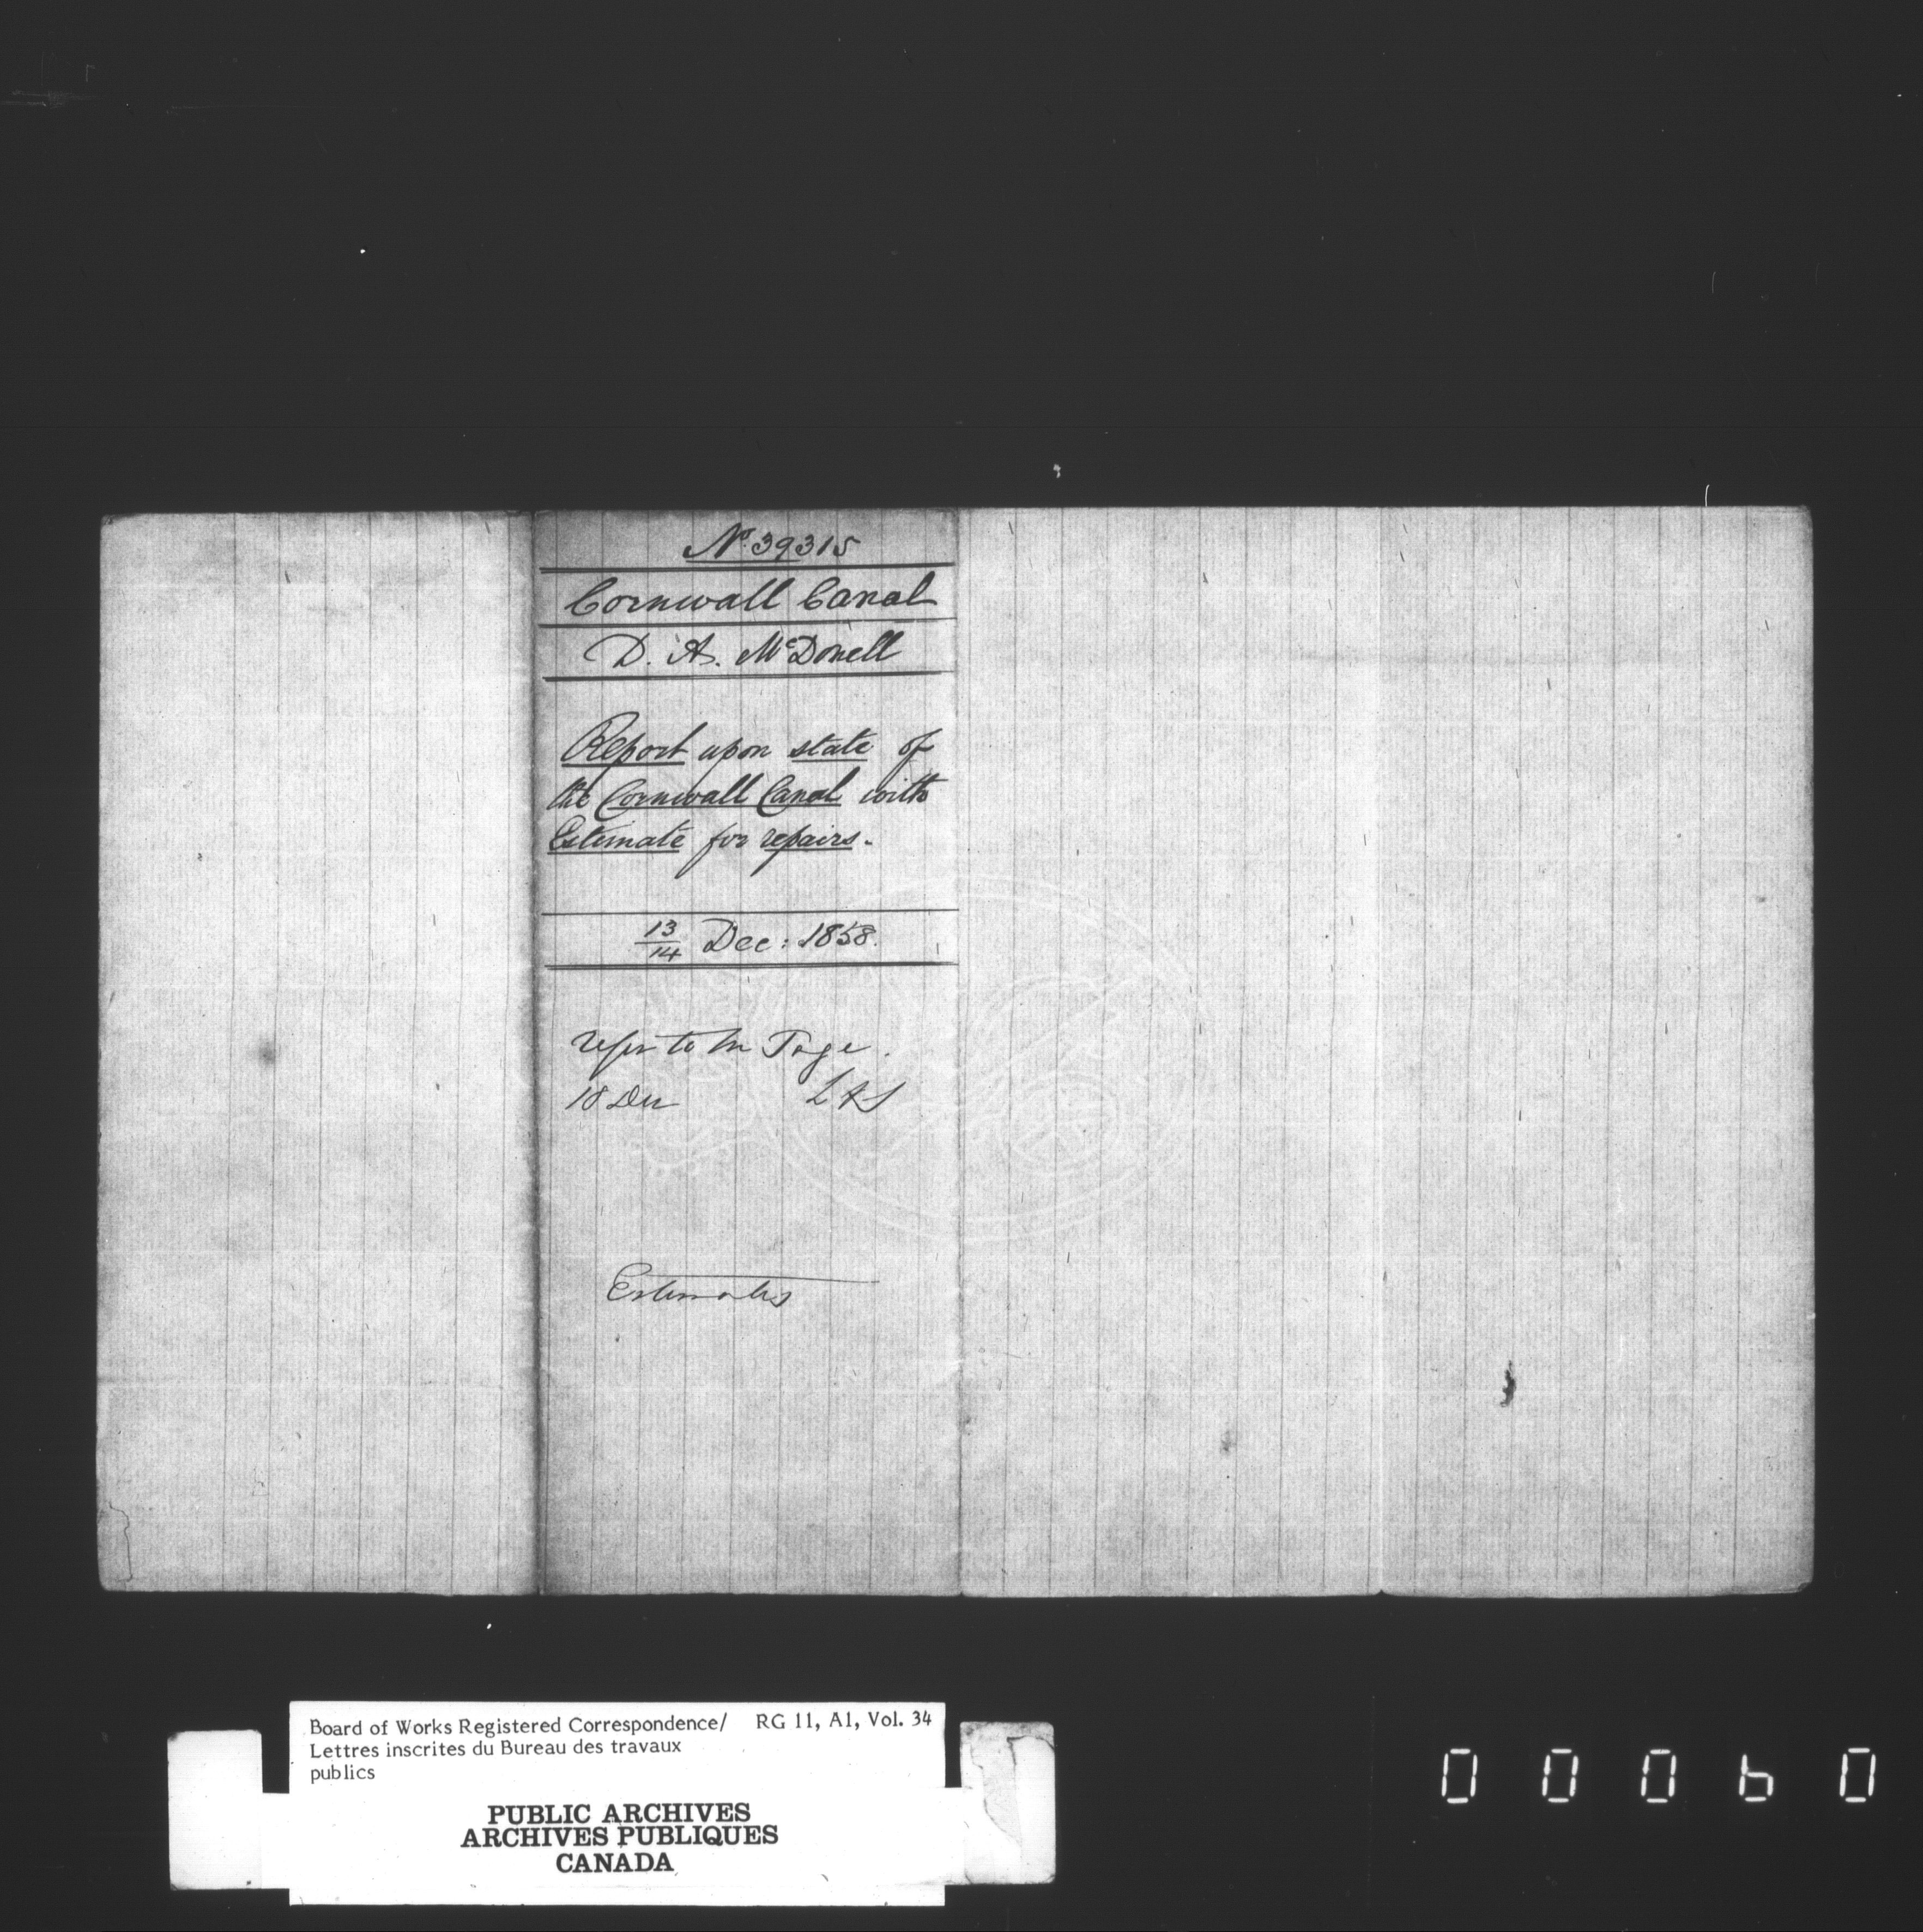 No. 39315
Cornwall Canal
D. A. McDonell
Report upon state of
the Cornwall Canal with
Estimate for repairs.
13/14 Dec: 1858.
refer to Mr Page.
18 Dec
Estimates
Board of Works Registered Correspondence/ RG 11, A1, Vol. 34
Lettres inscrites du Bureau des travaux
publics
PUBLIC ARCHIVES
ARCHIVES PUBLIQUES
CANADA
00060